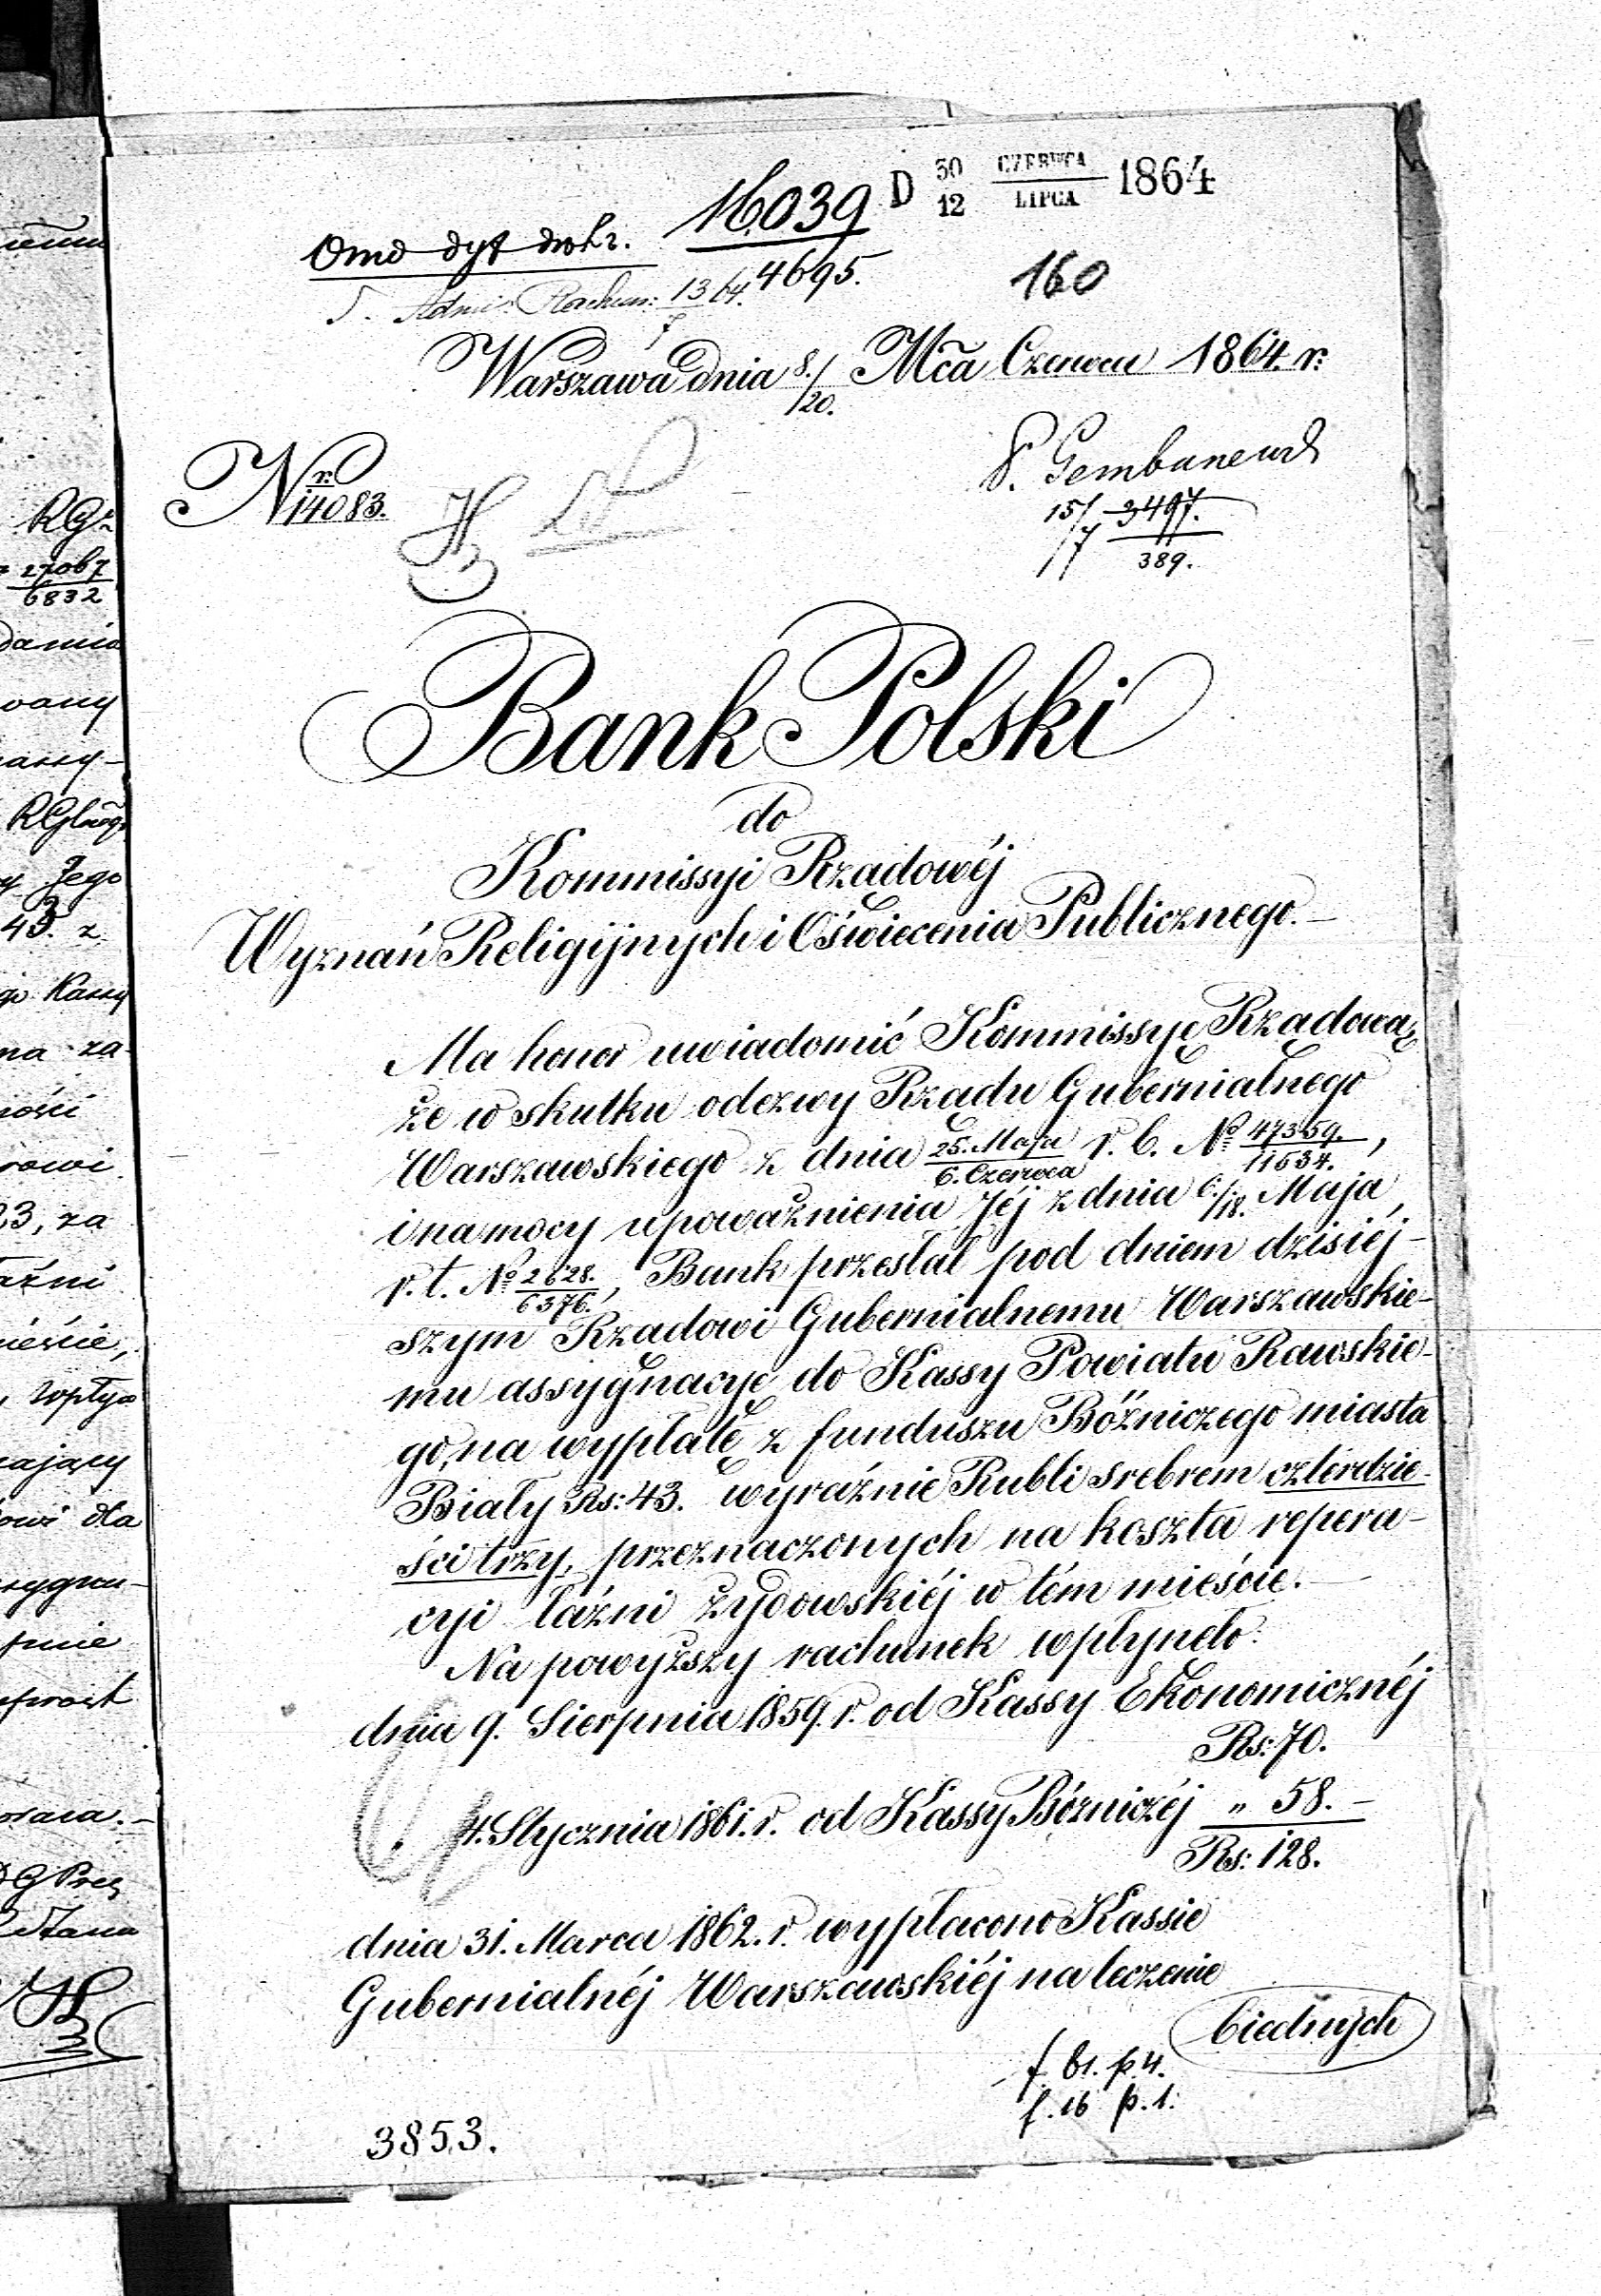 D 30/12 CZERWCA/LIPCA 1864
16039
4695.
160
13/7 64.
Warszawa dnia 8./20. Mca Czerwca 1864. r:
Nr. 14083.
15/7 3497.
389.
Bank Polski
do
Kommissyi Rządowéj
Wyznań Religijnych i Oświecenia Publicznego.
Ma honor uwiadomić Kommissyę Rządową,
że w skutku odezwy Rządu Gubernialnego
Warszawskiego z dnia 25. Maja/6. Czerwca r. b. No 47359./11634.,
i na mocy upoważnienia Jéj z dnia 6./18. Maja,
r. t. No 2628./6376., Bank przesłał pod dniem dzisiéj-
szym Rządowi Gubernialnemu Warszawskie-
mu assygnacyę do Kassy Powiatu Rawskie-
go, na wypłatę z funduszu Bóźniczego miasta
Biały Rs: 43. wyraźnie Rubli srebrem czterdzie-
ści trzy, przeznaczonych na koszta repera-
cyi łaźni żydowskiéj w tém mieście.
Na powyższy rachunek wpłynęło:
dnia 9. Sierpnia 1859. r. od Kassy Ekonomicznéj
Rs: 70.
4. Stycznia 1861. r. od Kassy Bóżniczéj " 58.
Rs: 128.
dnia 31. Marca 1862. r. wypłacono Kassie
Gubernialnéj Warszawskiéj na leczenie
biednych
f. 61. p. 4.
f. 16 p. 1.
3853.